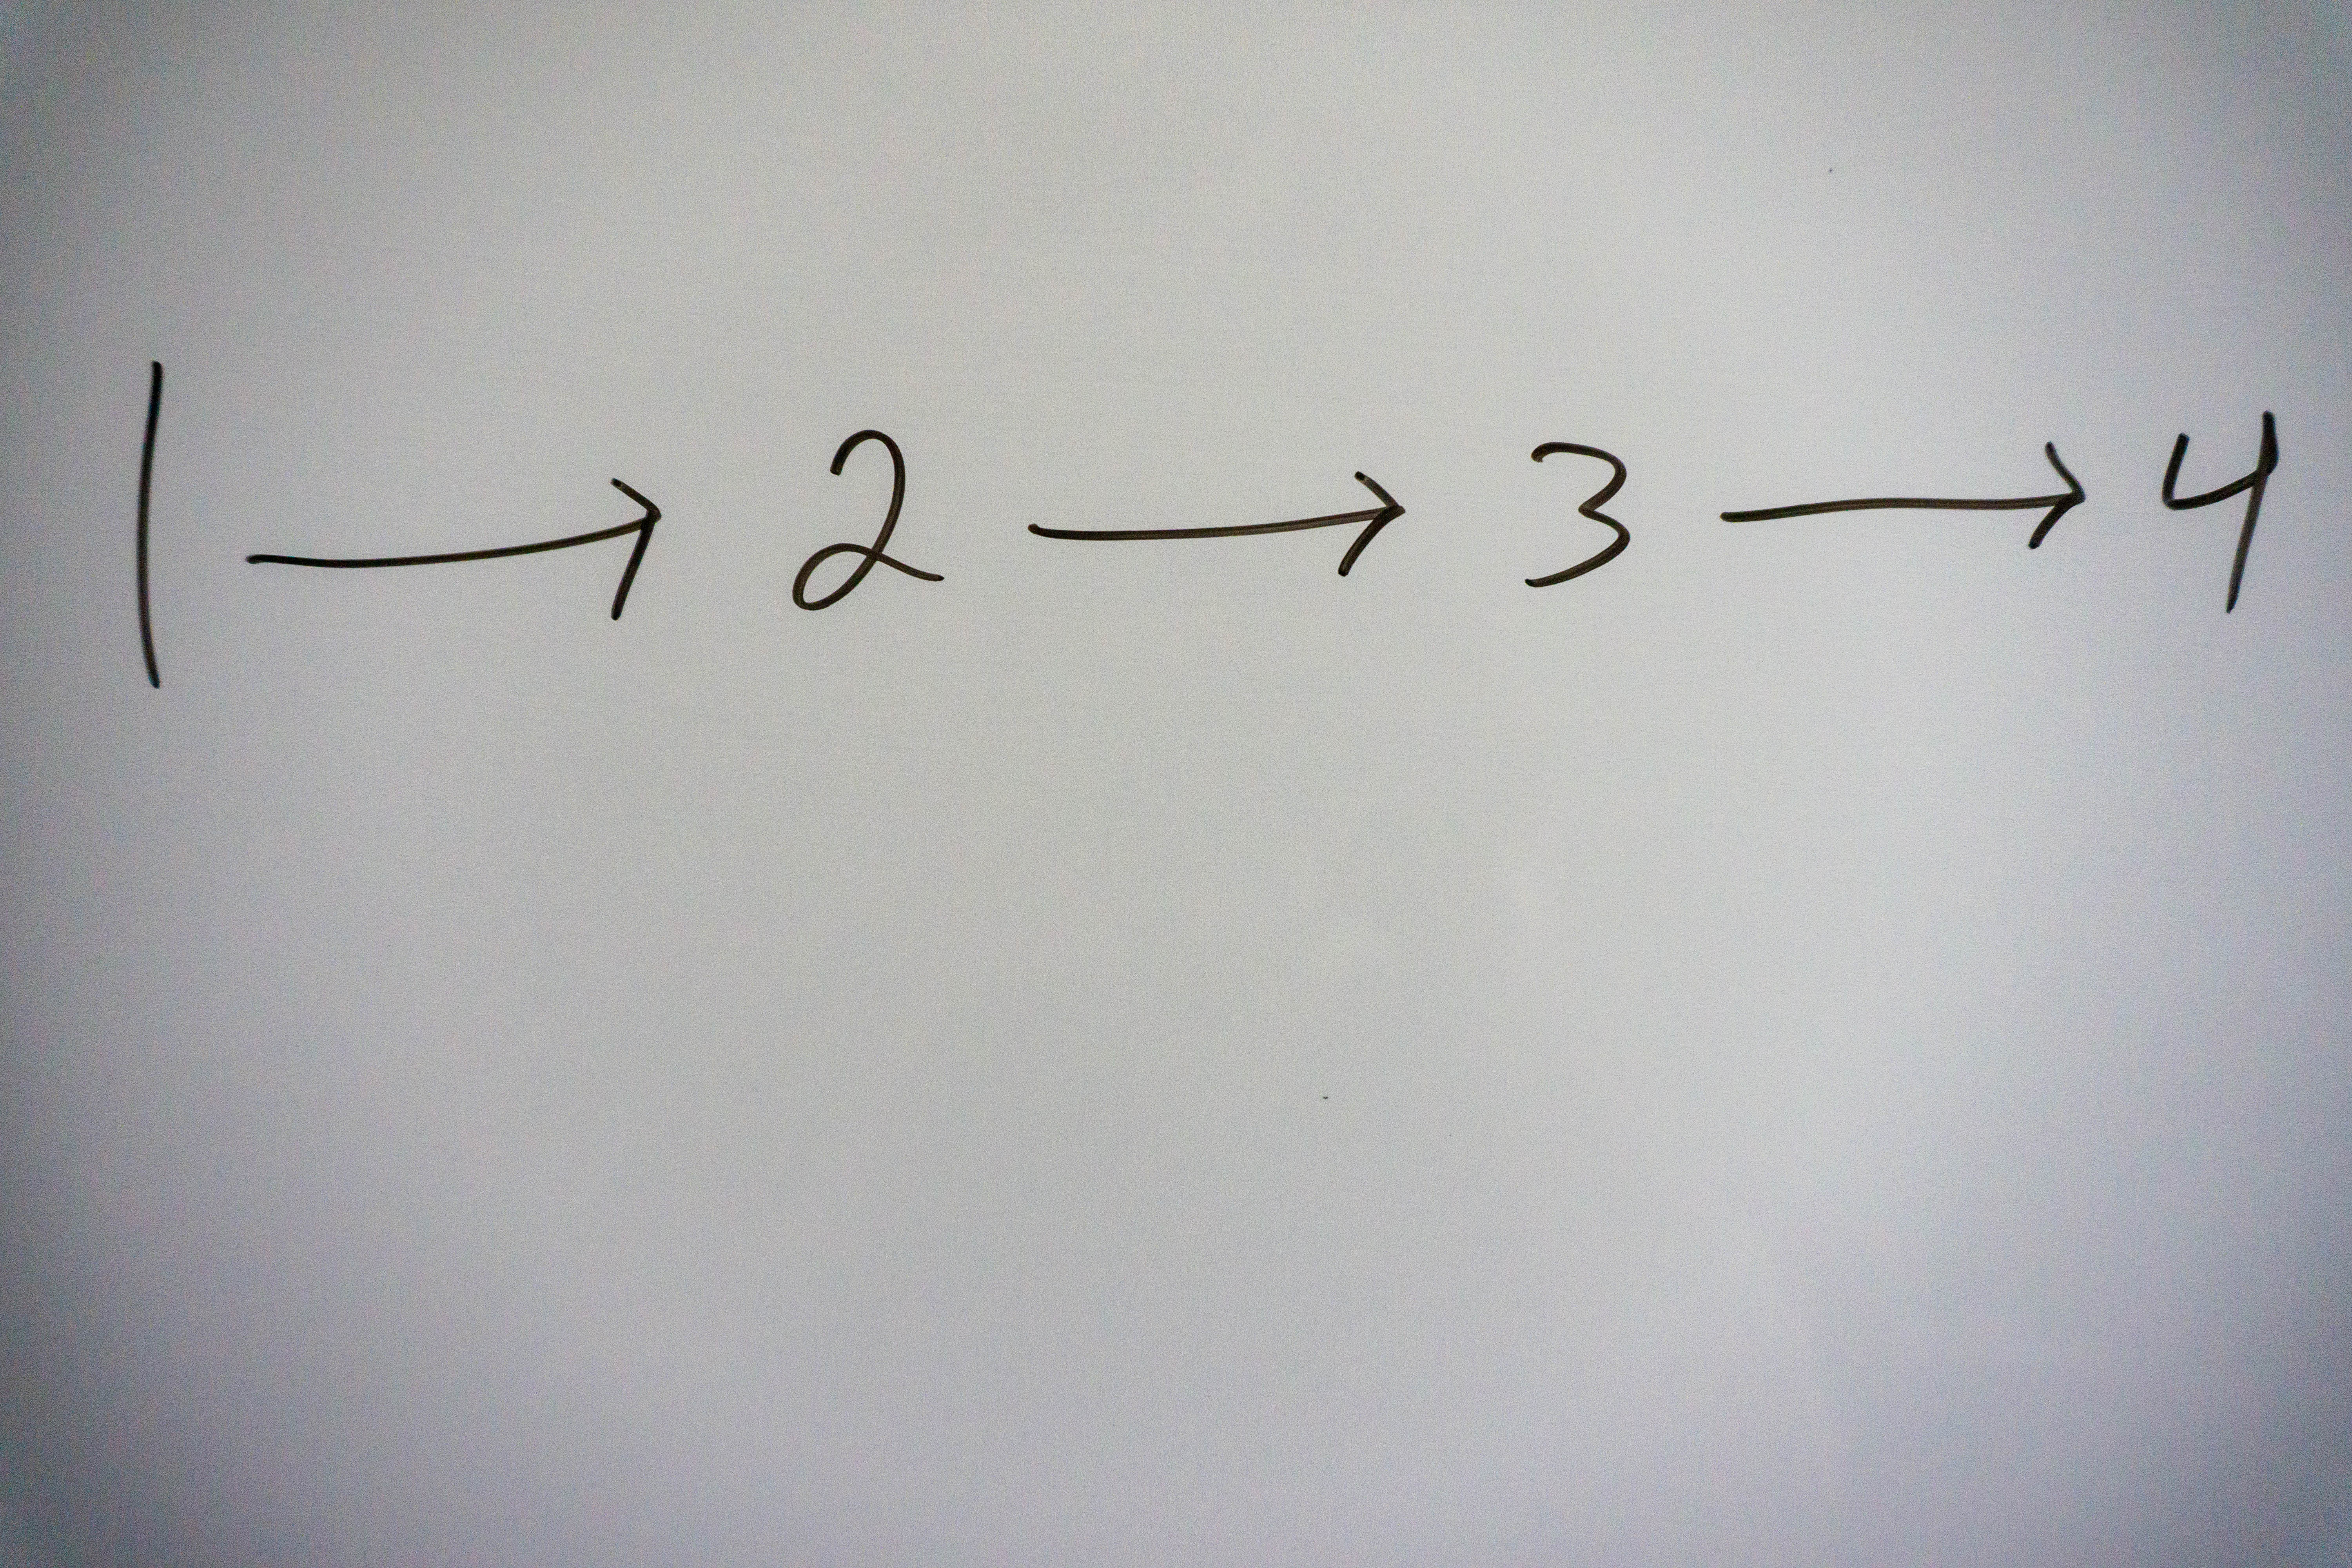 1 → 2 → 3 → 4